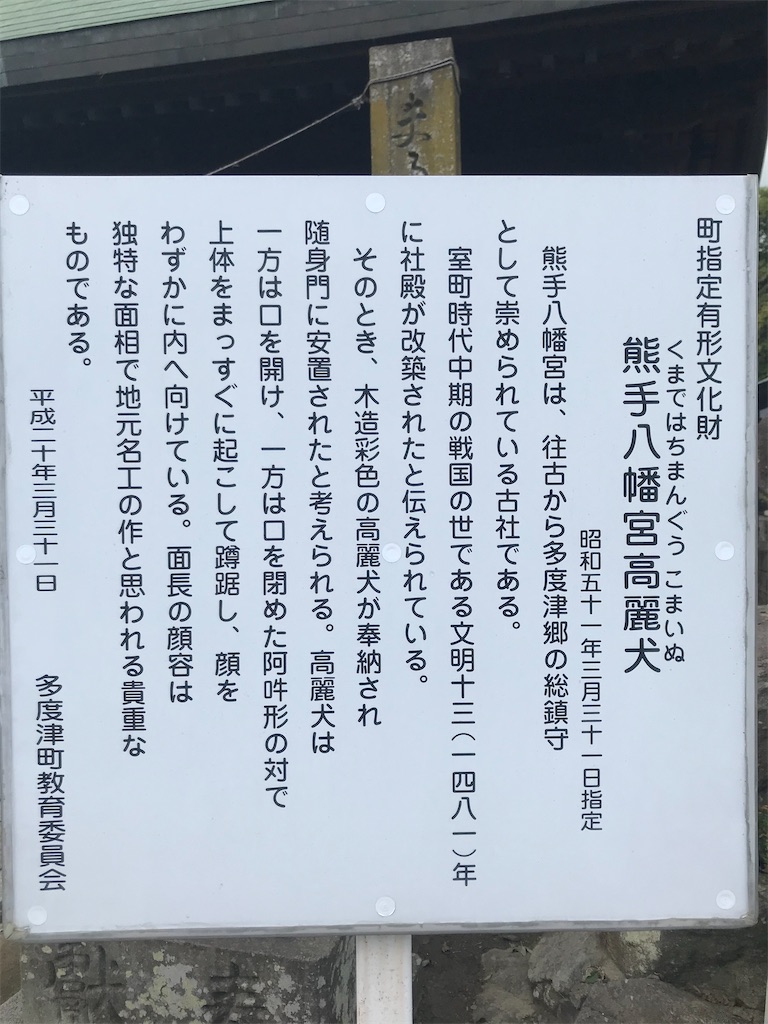 町指定有形文化財
くまではちまんぐう こまいぬ
熊手八幡宮高麗犬
昭和五十一年三月三十一日指定
熊手八幡宮は、往古から多度津郷の総鎮守
として崇められている古社である。
室町時代中期の戦国の世である文明十三(一四八一)年
に社殿が改築されたと伝えられている。
そのとき、木造彩色の高麗犬が奉納され
随身門に安置されたと考えられる。高麗犬は
一方は口を開け、一方は口を閉めた阿吽形の対で
上体をまっすぐに起こして蹲踞し、顔を
わずかに内へ向けている。面長の顔容は
独特な面相で地元名工の作と思われる貴重な
ものである。
平成二十年三月三十一日
多度津町教育委員会
献